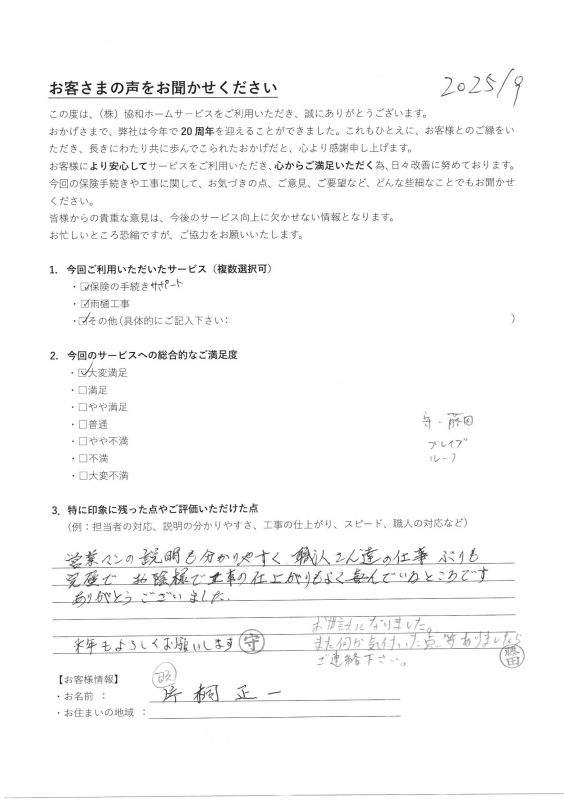 お客さまの声をお聞かせください
2025/9
この度は、（株）協和ホームサービスをご利用いただき、誠にありがとうございます。
おかげさまで、弊社は今年で20周年を迎えることができました。これもひとえに、お客様とのご縁をい
ただき、長きにわたり共に歩んでこられたおかげだと、心より感謝申し上げます。
お客様により安心してサービスをご利用いただき、心からご満足いただく為、日々改善に努めております。
今回の保険手続きや工事に関して、お気づきの点、ご意見、ご要望など、どんな些細なことでもお聞かせ
ください。
皆様からの貴重な意見は、今後のサービス向上に欠かせない情報となります。
お忙しいところ恐縮ですが、ご協力をお願いいたします。
1. 今回ご利用いただいたサービス（複数選択可）
・☑保険の手続きサポート
・☑雨樋工事
・☑その他（具体的にご記入下さい： ）
2. 今回のサービスへの総合的なご満足度
・☑大変満足
・□満足
・□やや満足
・□普通
・□やや不満
・□不満
・□大変不満
守・藤田
ブレイブ
ルーフ
3. 特に印象に残った点やご評価いただけた点
（例：担当者の対応、説明の分かりやすさ、工事の仕上がり、スピード、職人の対応など）
営業マンの説明も分かりやすく 職人さん達の仕事 ぶりも
完璧で お陰様で工事の仕上がりもよく喜んでいるところです
ありがとうございました。
来年もよろしくお願いします 守
お世話になりました。
また何か気付いた点 等ありましたら
ご連絡下さい。 藤田
【お客様情報】
・お名前 ： 片桐 正一
・お住まいの地域 ：